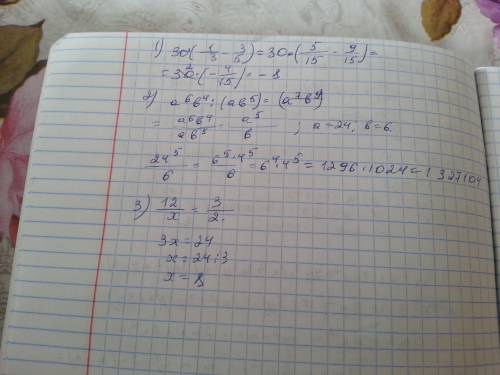 1) 30·(1/3 - 3/5) = 30·(5/15 - 9/15) =
= 30²·(-4/15) = -8
2) a⁶b⁴ : (ab⁵) = (a⁷b⁹)
= a⁶b⁴/ab⁵ = a⁵/b ; a = 24, b = 6.
24⁵/6 = 6⁵·4⁵/6 = 6⁴·4⁵ = 1296·1024 = 1327104
3) 12/x = 3/2.
3x = 24
x = 24:3
x = 8